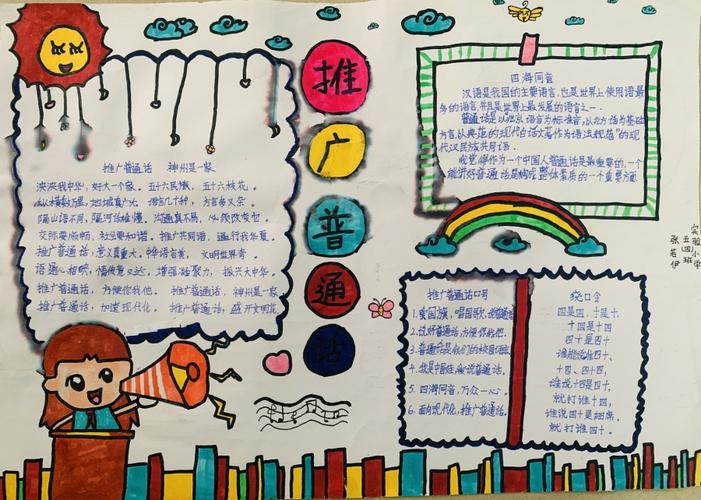 推
广
普
通
话
推广普通话 神州是一家
泱泱我中华，好大一个家。五十六民族，五十六枝花。
纵横数万里，地域真广大。语言几十种，方言多又杂。
隔山语不同，沟通真不易，必须改变它。
交际要顺畅，社会要和谐。推广共同语，通行我华夏。
推广普通话，意义真重大。
语通心相晓，情深意又达。增强凝聚力，振兴大中华。
推广普通话，方便你我他。推广普通话，神州是一家
推广普通话，加速现代化。推广普通话，盛开文明花
四海同音
汉语是我国的主要语言，也是世界上使用语最
多的语言，并且是世界上最发展的语言之一。
普通话是以北京语言为标准音，以北方话为基础
方言，以典范的现代白话文著作为语法规范"的现
代汉民族共同语。
我觉得作为一个中国人普通话是最重要的，一个
人能讲好普通话是构成整体素质的一个重要方面
推广普通话口号
1.爱国旗，唱国歌，说普通话
2.说好普通话，方便你我他。
3.普通话是我们的校园语言
4.我是中国娃，爱说普通话。
5.四海同音，万众一心。
6.面向现代化，推广普通话。
绕口令
四是四，十是十
十四是十四
四十是四十
谁能说准四十、
十四、四十四，
谁说十四是四十，
就打谁十四，
谁说四十是细席，
就打谁四十。
实验小学
五(四)班
张若伊